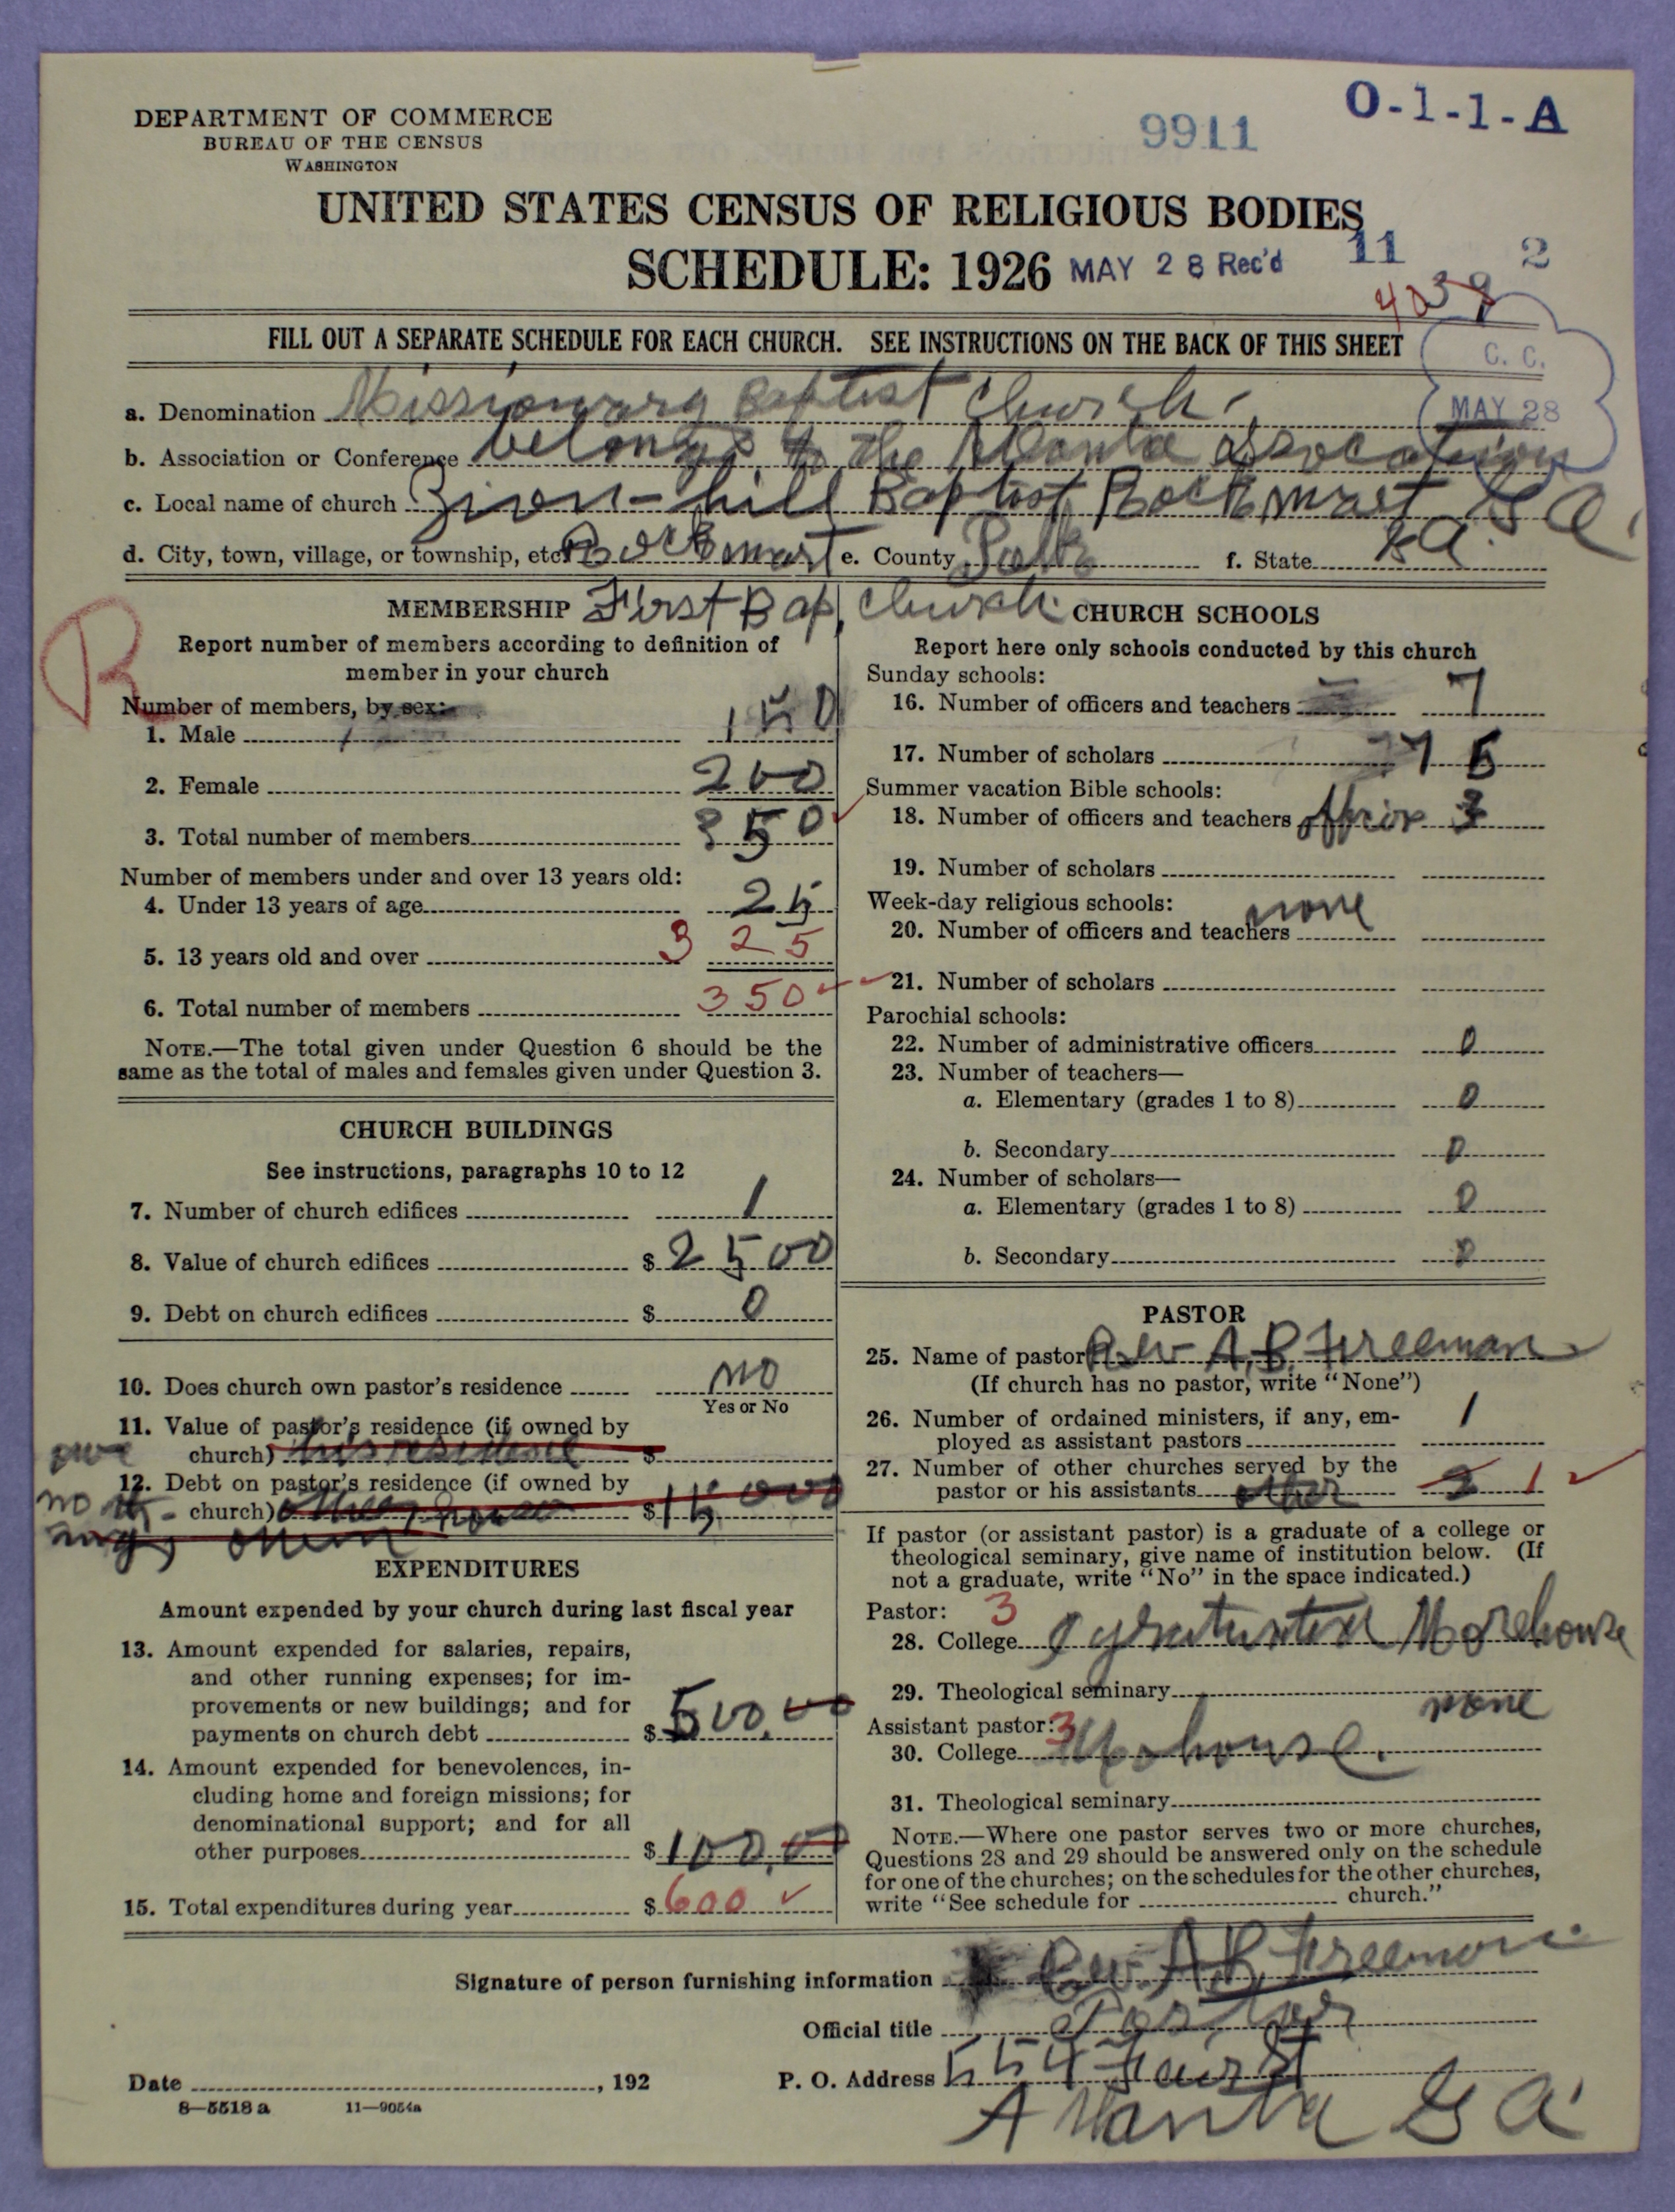 DEPARTMENT OF COMMERCE
BUREAU OF THE CENSUS
WASHINGTON
9911
O-1-1-A
UNITED STATES CENSUS OF RELIGIOUS BODIES
SCHEDULE: 1926 MAY 28 Rec'd 11 2
FILL OUT A SEPARATE SCHEDULE FOR EACH CHURCH. SEE INSTRUCTIONS ON THE BACK OF THIS SHEET
C. C.
MAY 28
a. Denomination Missionary Baptist Church
b. Association or Conference belongs to the Atlanta association
c. Local name of church Zion-hill Baptist Rockmart Ga.
d. City, town, village, or township, etc. Rockmart e. County Polk f. State Ga.
MEMBERSHIP First Bap. Church
R
Report number of members according to definition of
member in your church
Number of members, by sex:
1. Male 150
2. Female 200
3. Total number of members 350
Number of members under and over 13 years old:
4. Under 13 years of age 25
5. 13 years old and over 325
6. Total number of members 350
NOTE.—The total given under Question 6 should be the
same as the total of males and females given under Question 3.
CHURCH BUILDINGS
See instructions, paragraphs 10 to 12
7. Number of church edifices 1
8. Value of church edifices $ 2500
9. Debt on church edifices $ 0
10. Does church own pastor's residence no
Yes or No
11. Value of pastor's residence (if owned by
church) his residence $
12. Debt on pastor's residence (if owned by
church) $
EXPENDITURES
Amount expended by your church during last fiscal year
13. Amount expended for salaries, repairs,
and other running expenses; for im-
provements or new buildings; and for
payments on church debt $ 500.00
14. Amount expended for benevolences, in-
cluding home and foreign missions; for
denominational support; and for all
other purposes $ 100.00
15. Total expenditures during year $ 600
CHURCH SCHOOLS
Report here only schools conducted by this church
Sunday schools:
16. Number of officers and teachers 7
17. Number of scholars 76
Summer vacation Bible schools:
18. Number of officers and teachers 3
19. Number of scholars
Week-day religious schools:
20. Number of officers and teachers none
21. Number of scholars
Parochial schools:
22. Number of administrative officers 0
23. Number of teachers—
a. Elementary (grades 1 to 8) 0
b. Secondary 0
24. Number of scholars—
a. Elementary (grades 1 to 8) 0
b. Secondary 0
PASTOR
25. Name of pastor Rev A. B. Freeman
(If church has no pastor, write "None")
26. Number of ordained ministers, if any, em-
ployed as assistant pastors 1
27. Number of other churches served by the
pastor or his assistants other 2 1
If pastor (or assistant pastor) is a graduate of a college or
theological seminary, give name of institution below. (If
not a graduate, write "No" in the space indicated.)
Pastor: 3
28. College Morehouse
29. Theological seminary none
Assistant pastor: 3
30. College Mohouse.
31. Theological seminary
NOTE.—Where one pastor serves two or more churches,
Questions 28 and 29 should be answered only on the schedule
for one of the churches; on the schedules for the other churches,
write "See schedule for church."
Signature of person furnishing information Rev. A. B. Freeman
Official title Pastor
Date , 192
P. O. Address 554 Fair St
Atlanta Ga
8—5518 a 11—9054a